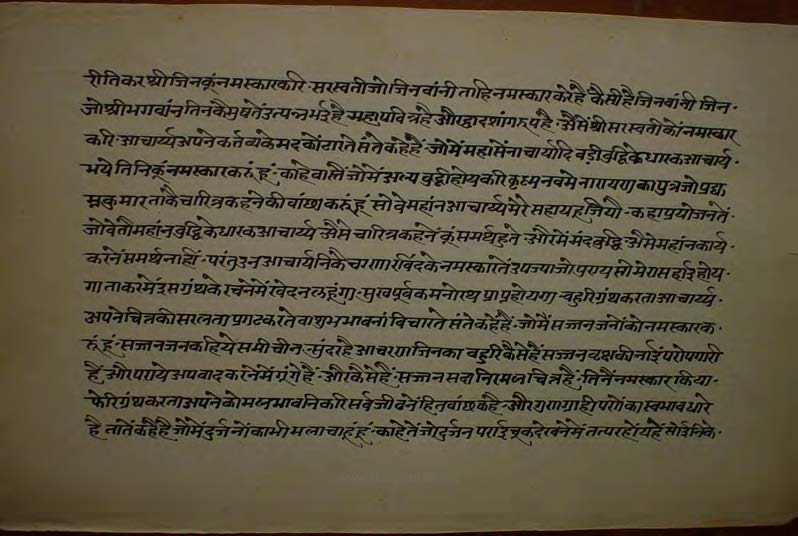 रीतिकर श्री जिनकूं नमस्कार करि· सरस्वती जो जिनवांनी ताहि नमस्कार करे है· कैसी है जिनवांनी जिन·
जो श्री भगवांन तिनकै मुषतें उत्पन्न भई है· महा पवित्र है और द्वादशांग रुप है· अैसें श्री सरस्वती कों नमस्कार
करि· आचार्य्य अपने कर्त्तव्य के मद कों टारते संते कहे हैं· जो में महासेंनाचार्यादि वडी वुद्धि के धारक आचार्य·
भये तिनिकूं नमस्कार करुं हूं· काहे वास्तें जो में अल्प वुद्धी होय करि कृष्म नवमे नारायण का पुत्र जो प्रद्य
म्नकुमार ताकै चारित्र कहने की वांछा करुं हूं सो वे महांन आचार्य्य मेरे सहाय हूजियौ· कहा प्रयोजन तें·
जो वे तौ महांन वुद्धि के धारक आचार्य्य· अैसे चारित्र कहनें कूं समर्थ हुते· और में मंद वुद्धि· अैसे महांन कार्य·
करनें समर्थ नाहीं· परंतु उन आचार्यनिकै चरणारविंद के नमस्कार तें उपज्या जो पुण्य सो मेरा सहाई होय·
गा ता कर में इस ग्रंथ के रचने में खेद न लहूंगा· सुख पूर्वक मनोरथ प्राप्त होयगा· वहुरि ग्रंथकरता आचार्य्य·
अपने चित्र की सरलता प्रगट करते वा शुभ भावनां विचारते संते कहे हैं· जो मैं सज्जन जनों कों नमस्कार क·
रुं हूं· सज्जन जन कहिये समीचीन सुंदर है आचरण जिनका वहुरि कैसे हैं सज्जन वृक्ष की नाईं परोपगारी
हैं और पराये अपवाद करने में गूंगे हैं· और कैसे हैं सज्जन सदा निरमल चित्र हैं· तिनैं नमस्कार किया·
फेरि ग्रंथ करता अपने कोमल भाव निकरि सर्व जीवनें हित वांछक है· और गुण ग्राही पणें का स्वभाव धारे
है तातें कहै है जो में दुर्जनों का भी भला चाहूं हूं· काहे तें जो दुर्जन पराई चूक देखने में तत्पर होंय हैं सो उनिके·